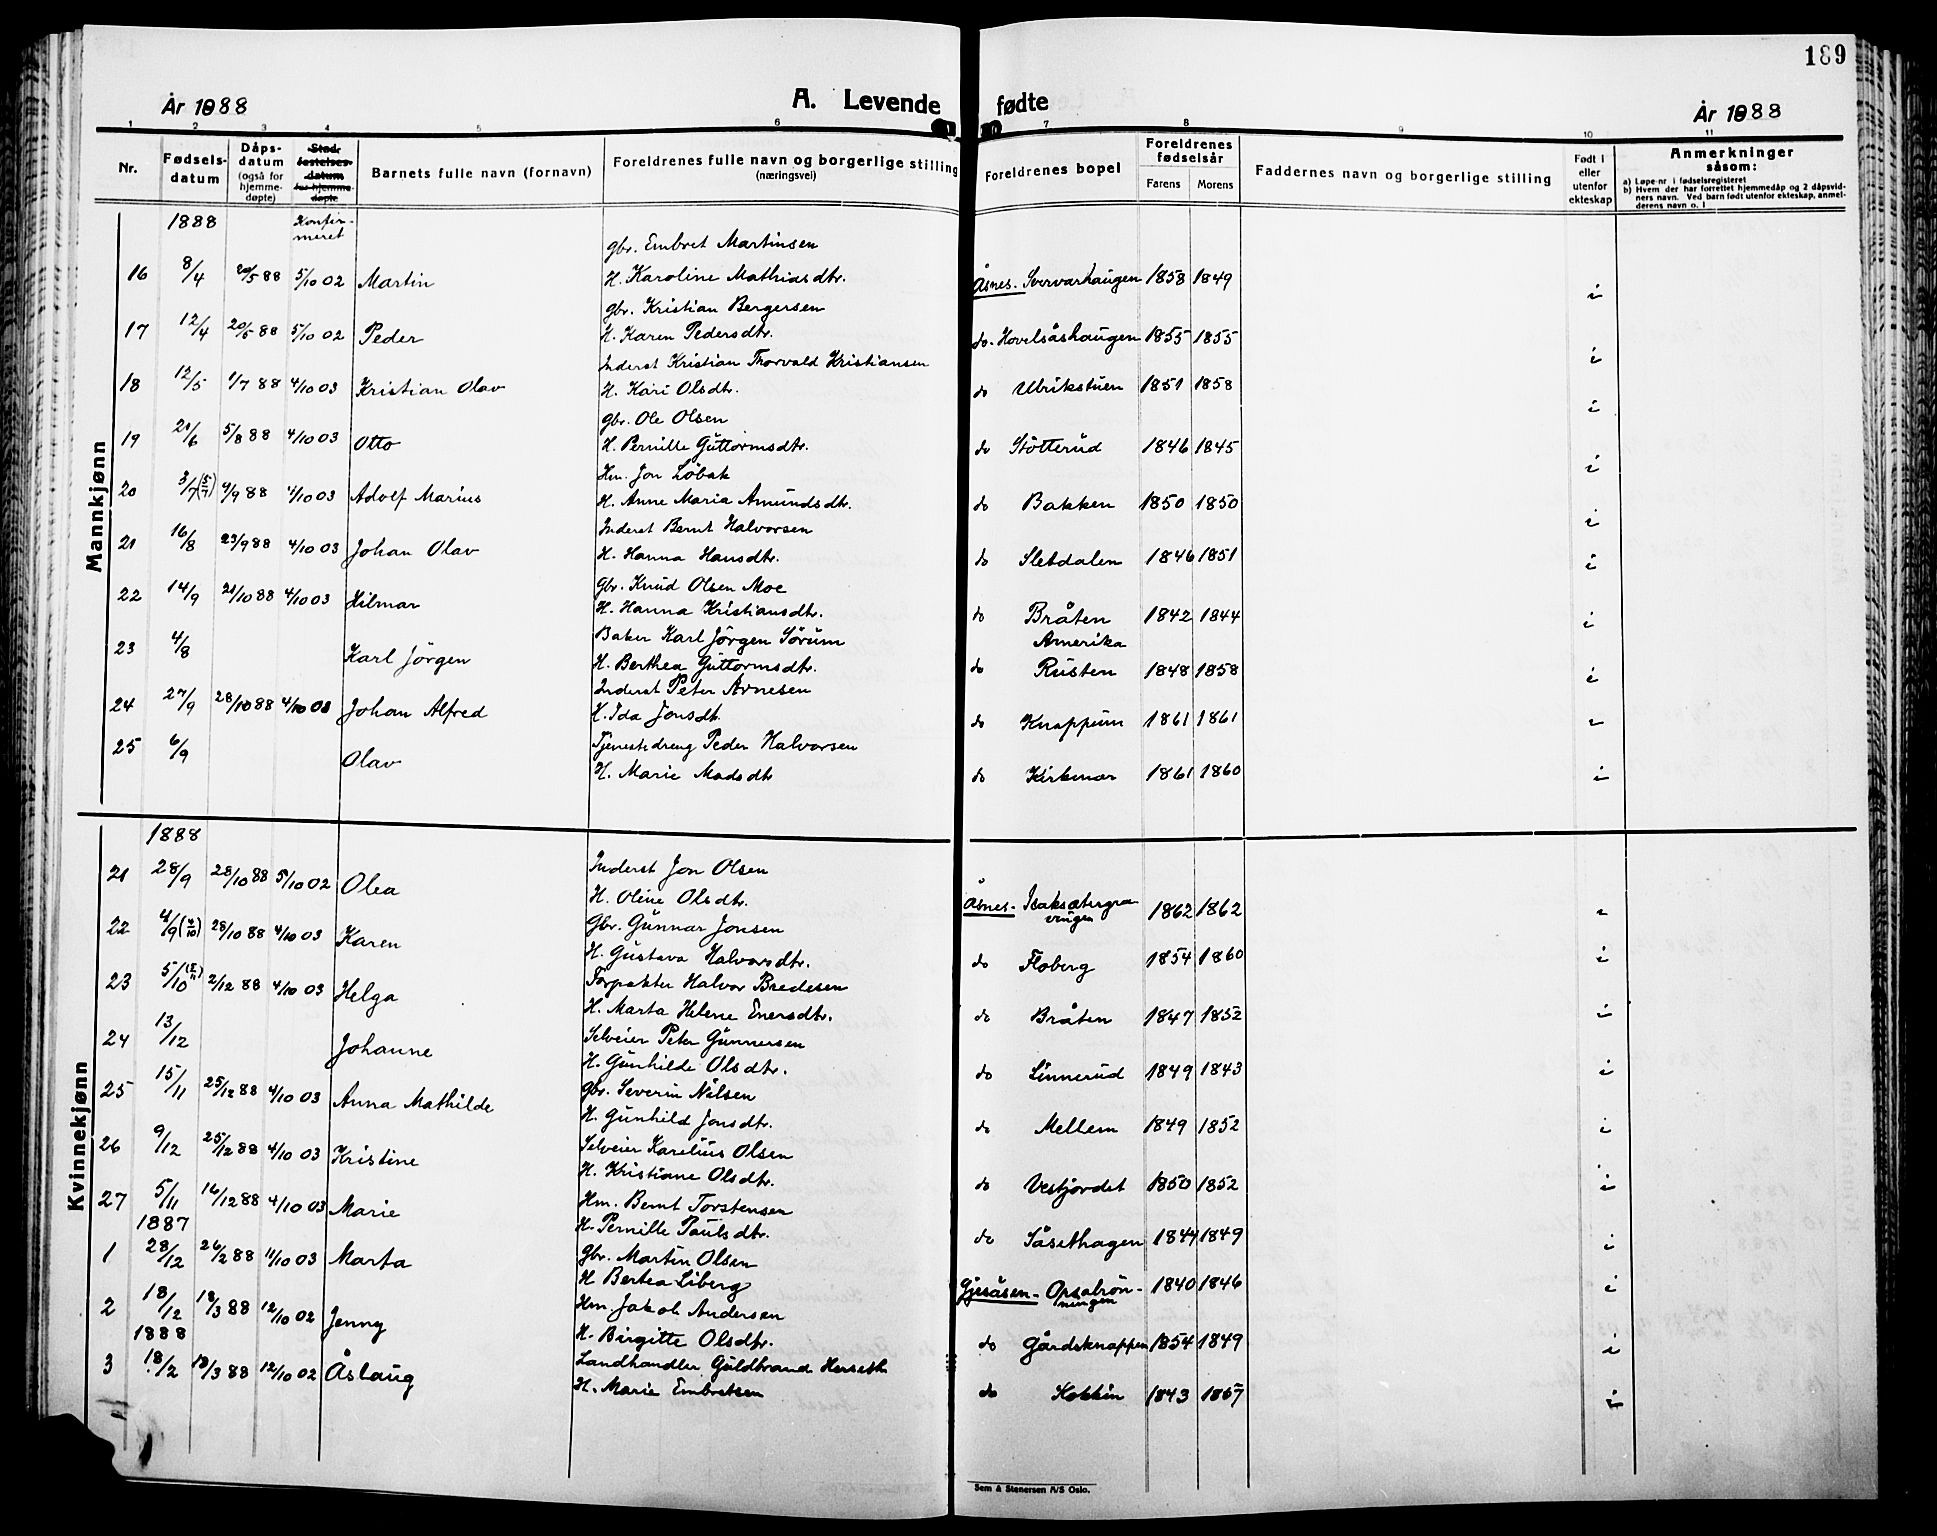 189
År 1888 A. Levende fødte År 1888
1 2 3 4 5 6 7 8 9 10 11
Nr. Fødsels-datum Dåps-datum (også for hjemme-døpte) Stad-festelses-datum for hjemme-døpte Barnets fulle navn (fornavn) Foreldrenes fulle navn og borgerlige stilling (næringsvei) Foreldrenes bopel Foreldrenes fødselsår Farens Morens Faddernes navn og borgerlige stilling Født i eller utenfor ekteskap Anmerkninger såsom:
a) Løpe-nr i fødselsregisteret
b) Hvem der har forrettet hjemmedåp og 2 dåpsvidners navn. Ved barn født utenfor ekteskap, anmelderens navn o. l
Mannkjønn
1888 Konfirmeret
gbr. Embret Martinsen
16 8/4 20/5 88 5/10 02 Martin H. Karoline Mathiasdtr. Åsnes. Sorvarhaugen 1858 1849 i
gbr. Kristian Bergersen
17 12/4 20/5 88 5/10 02 Peder H. Karen Pedersdtr. do. Hovelsåshaugen 1855 1855 i
Inderst Kristian Thorvald Kristiansen
18 12/5 1/7 88 4/10 03 Kristian Olav H. Kari Olsdtr. do Ulrikstuen 1851 1858 i
gbr. Ole Olsen
19 21/6 5/8 88 4/10 03 Otto H. Pernille Guttormsdtr. do Stötterud 1846 1845 i
Hm. Jon Löbak
20 3/7 (5/7) 9/9 88 4/10 03 Adolf Marius H. Anne Maria Amundsdtr. do Bakken 1850 1850 i
Inderst Bernt Halvorsen
21 16/8 23/9 88 4/10 03 Johan Olav H. Hanna Hansdtr. do Sletdalen 1846 1851 i
gbr. Knud Olsen Moe
22 14/9 21/10 88 4/10 03 Hilmar H. Hanna Kristiansdtr. do Bråten 1842 1844 i
Baker Karl Jörgen Sörum Amerika
23 4/8 Karl Jörgen H. Berthea Guttormsdtr. do Rusten 1848 1858 i
Inderst Peter Arnesen
24 27/9 28/10 88 4/10 03 Johan Alfred H. Ida Jonsdt. do Knappum 1861 1861 i
Tjenestedreng Peder Halvorsen
25 6/9 Olav H. Marie Madsdtr do Kirkmor 1861 1860 i
Kvinnekjønn
1888
Inderst Jon Olsen
21 28/9 28/10 88 5/10 02 Olea H. Oline Olsdtr. Åsnes. Isaksætergravingen 1862 1862 i
Gbr. Gunnar Jonsen
22 4/9 (4/10) 28/10 88 4/10 03 Karen H. Gustava Halvorsdtr. do Floberg 1854 1860 i
Forpakter Halvor Bredesen
23 5/10 (5/11) 2/12 88 4/10 03 Helga H. Marta Helene Enersdtr. do Bråten 1847 1852 i
Selveier Peter Gunnersen
24 13/12 Johanne H. Gunhilde Olsdtr. do Linnerud 1849 1843 i
gbr. Severin Nilsen
25 15/11 25/12 88 4/10 03 Anna Mathilde H. Gunhild Jonsdtr. do Mellem 1849 1852 i
Selveier Karelius Olsen
26 9/12 25/12 88 4/10 03 Kristine H. Kristiane Olsdtr. do Vestjordet 1850 1852 i
Hm. Bernt Torstensen
27 5/11 16/12 88 4/10 03 Marie H. Pernille Paulsdtr. do Såsethagen 1844 1849 i
1887
gbr. Martin Olsen
1 28/12 26/2 88 11/10 03 Marta H Bertea Liberg Gjesåsen - Opsalrönningen 1840 1846 i
Hm. Jakob Andersen
2 18/12 18/3 88 12/10 02 Jenny H. Birgitte Olsdtr. do Gårdsknappen 1854 1849 i
1888
Landhandler Guldbrand Herseth
3 18/2 18/3 88 12/10 02 Åslaug H. Marie Embretsen do Kokkin 1843 1857 i
Sem & Stenersen A/S Oslo.